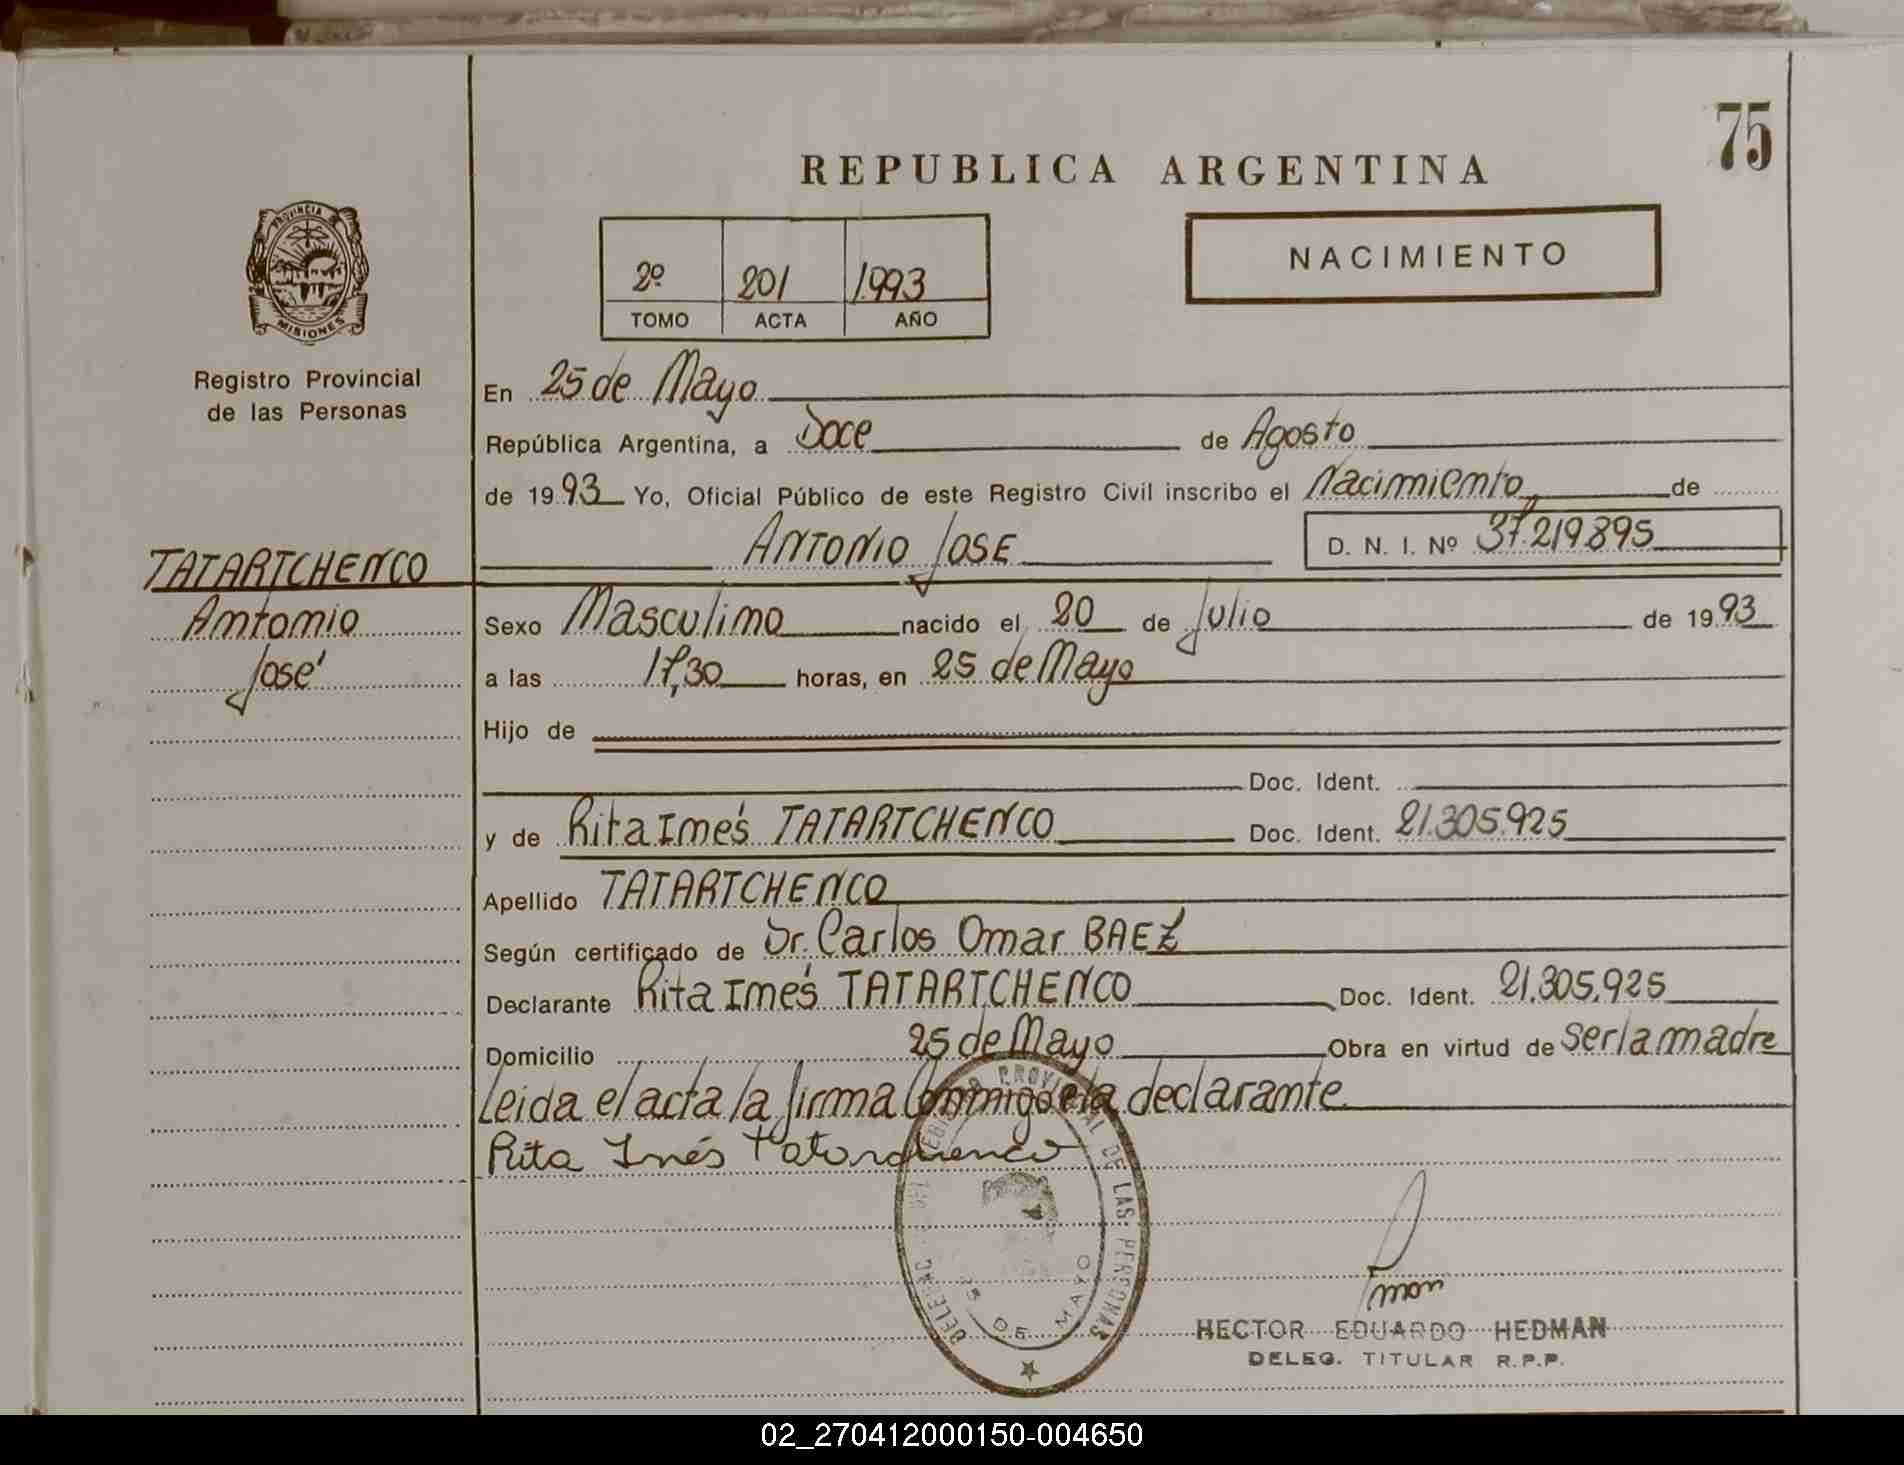 75
REPUBLICA ARGENTINA
PROVINCIA DE
MISIONES
Registro Provincial
de las Personas
2º 201 1993
TOMO ACTA AÑO
NACIMIENTO
En 25 de Mayo
República Argentina, a Doce de Agosto
de 1993 Yo, Oficial Público de este Registro Civil inscribo el Nacimiento de
ANTONIO JOSE D. N. I. Nº 37.219.895
TATARTCHENCO
Antonio
José
Sexo Masculino nacido el 20 de Julio de 1993
a las 17,30 horas, en 25 de Mayo
Hijo de
Doc. Ident.
y de Rita Inés TATARTCHENCO Doc. Ident. 21.305.925
Apellido TATARTCHENCO
Según certificado de Dr. Carlos Omar BAEZ
Declarante Rita Inés TATARTCHENCO Doc. Ident. 21.305.925
Domicilio 25 de Mayo Obra en virtud de ser la madre
Leida el acta la firma Conmigo la declarante
Rita Inés Tatarchenco
PROVINCIAL DE LAS PERSONAS
25 DE MAYO
HECTOR EDUARDO HEDMAN
DELEG. TITULAR R.P.P.
02_270412000150-004650